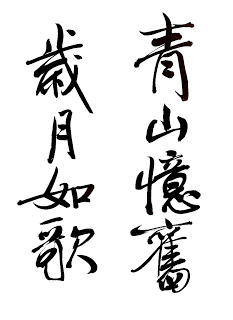 青山憶舊
歲月如歌